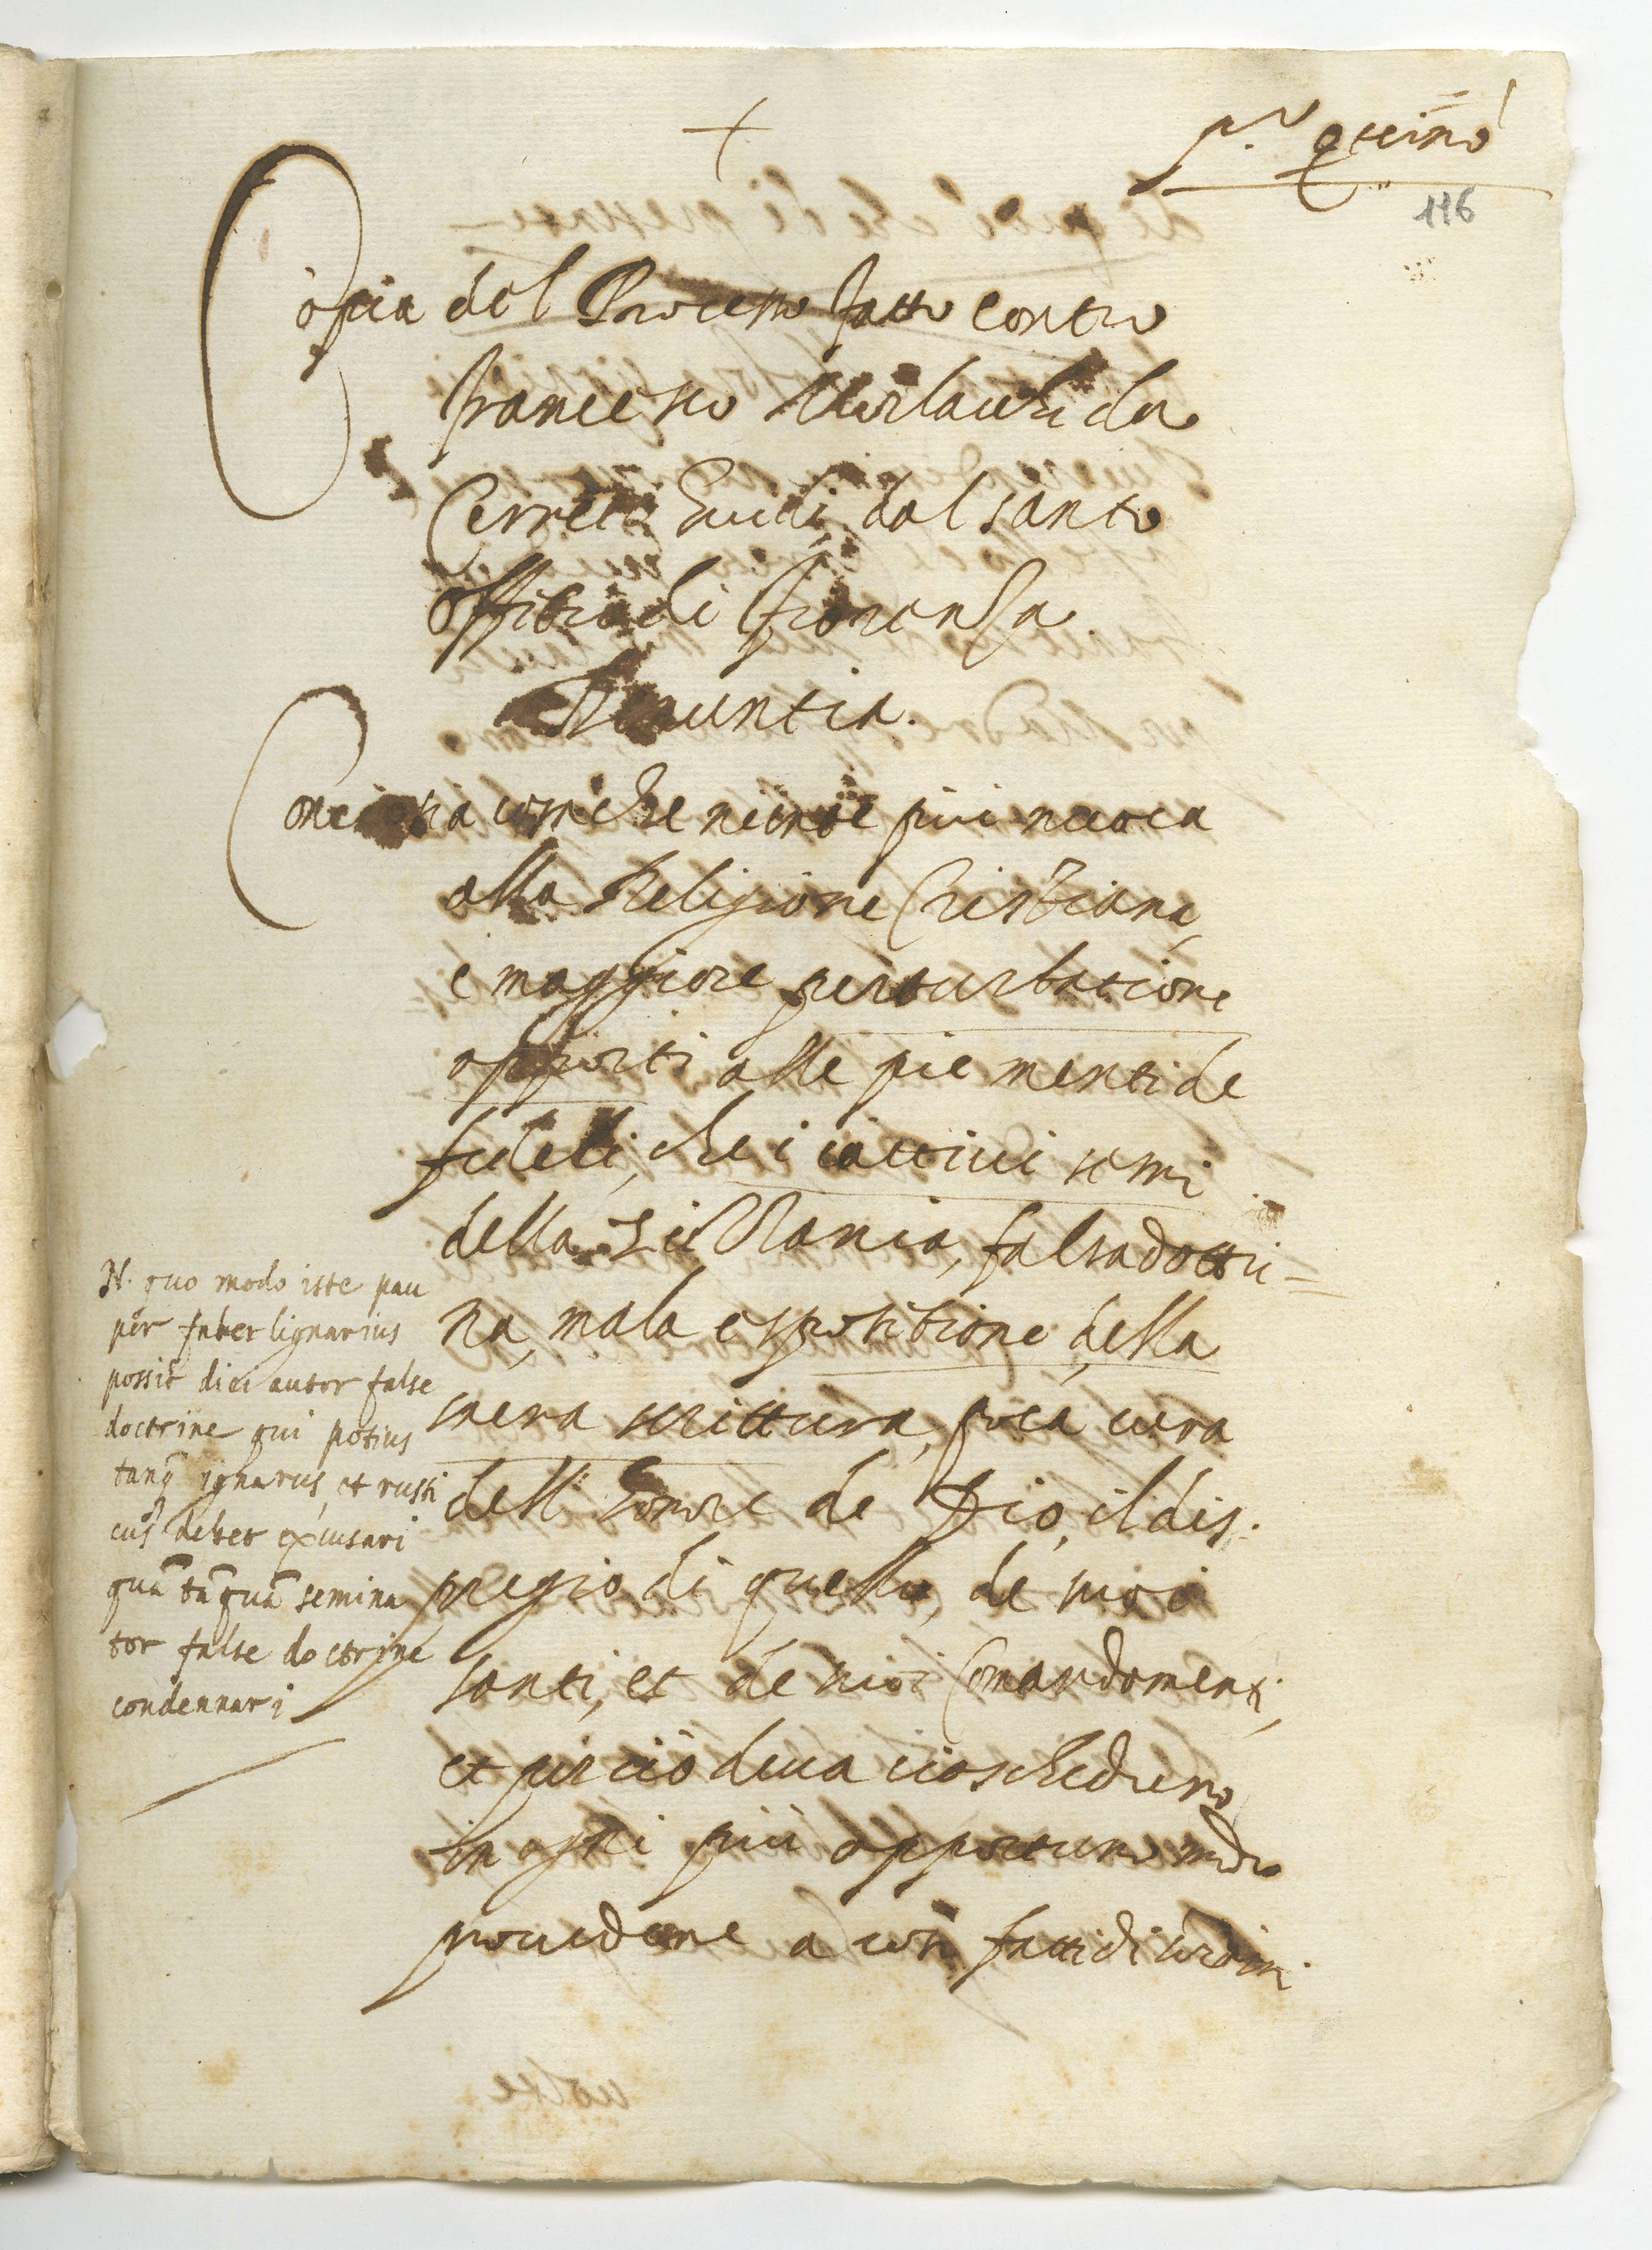 +
116
Copia del Processo fatto contro
Francesco Morlauchi da
Cerreto Guidi, dal santo
offitio di Fiorenza
Denuntia.
Conciosia cosa che niente più nuoca
alla Religione Cristiana,
e maggiore perturbatione
apporti alle pie menti de
fideli, che i cattivi semi
della Zizzania, falsa dottri=
na, mala espositione della
sacra scrittura, poca cura
dell' honore de Dio, il dis-
pregio di quello, de suoi
santi, et de suoi Comandamenti,
et perciò deva ciascheduno
in ogni più opportuno modo
provedere a così fatti disordini
N. quo modo iste pau
per faber lignarius
possit dici autor false
doctrine qui potius
tanq ignarus, et rusti
cus debet excusari
quā tāquā semina
tor false doctrine
condennari